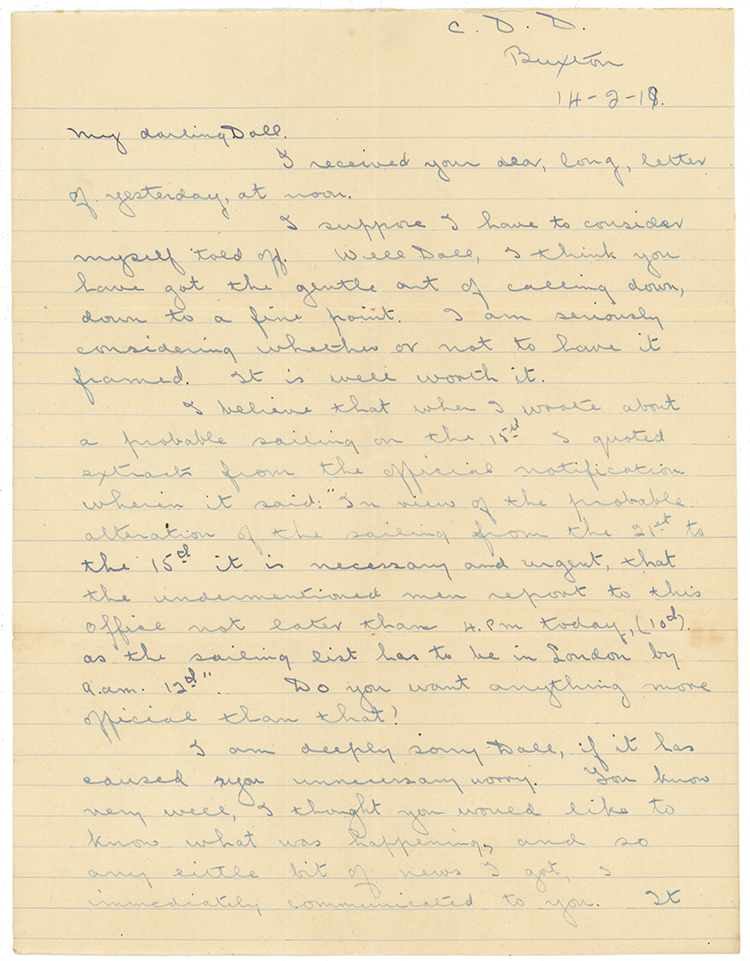 C. D. D.
Buxton
14-2-19.
My darling Dall.
I received your dear, long, letter
of yesterday, at noon.
I suppose I have to consider
myself told off. Well Dall, I think you
have got the gentle art of calling down,
down to a fine point. I am seriously
considering whether or not to have it
framed. It is well worth it.
I believe that when I wrote about
a probable sailing on the 15th I quoted
extracts from the official notification
wherein it said: "In view of the probable
alteration of the sailing from the 21st to
the 15th it is necessary and urgent, that
the undermentioned men report to this
Office not later than 4.P.m today, (10th).
as the sailing list has to be in London by
9.am. 12th". Do you want anything more
official than that?
I am deeply sorry Dall, if it has
caused you unnecessary worry. You know
very well, I thought you would like to
know what was happening, and so
any little bit of news I got, I
immediately communicated to you. It